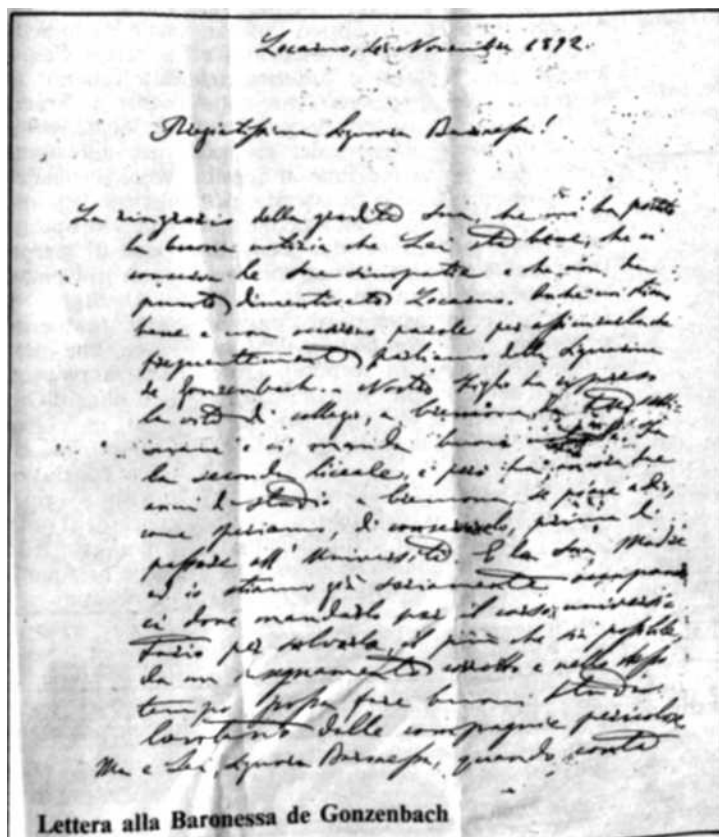 Locarno, Novembre 1892.
Pregiatissima Signora Baronessa!
La ringrazio della gradita Sua, che mi ha portato
la buona notizia che Lei sta bene, che ci
conserva le Sue simpatie e che non ha
punto dimenticato Locarno.
bene e parole per assicurarla
frequentemente parliamo della Signora
de Gonzenbach. Nostro figlio ha
la vita di collegio, a
e ci manda buone
la seconda liceale, e però
anni di studio a se piace a dio,
come speriamo, di conservarlo, prima di
passare all' Università. E la Sua Madre
ed io stiamo già seriamente
ci dove mandarlo per il corso universi-
tario per salvarlo, il più che sia possibile,
da un insegnamento corrotto e nello stesso
tempo possa fare buoni studi
lontano dalle compagnie pericolose
Ma e Lei, Signora Baronessa, quando conta
Lettera alla Baronessa de Gonzenbach